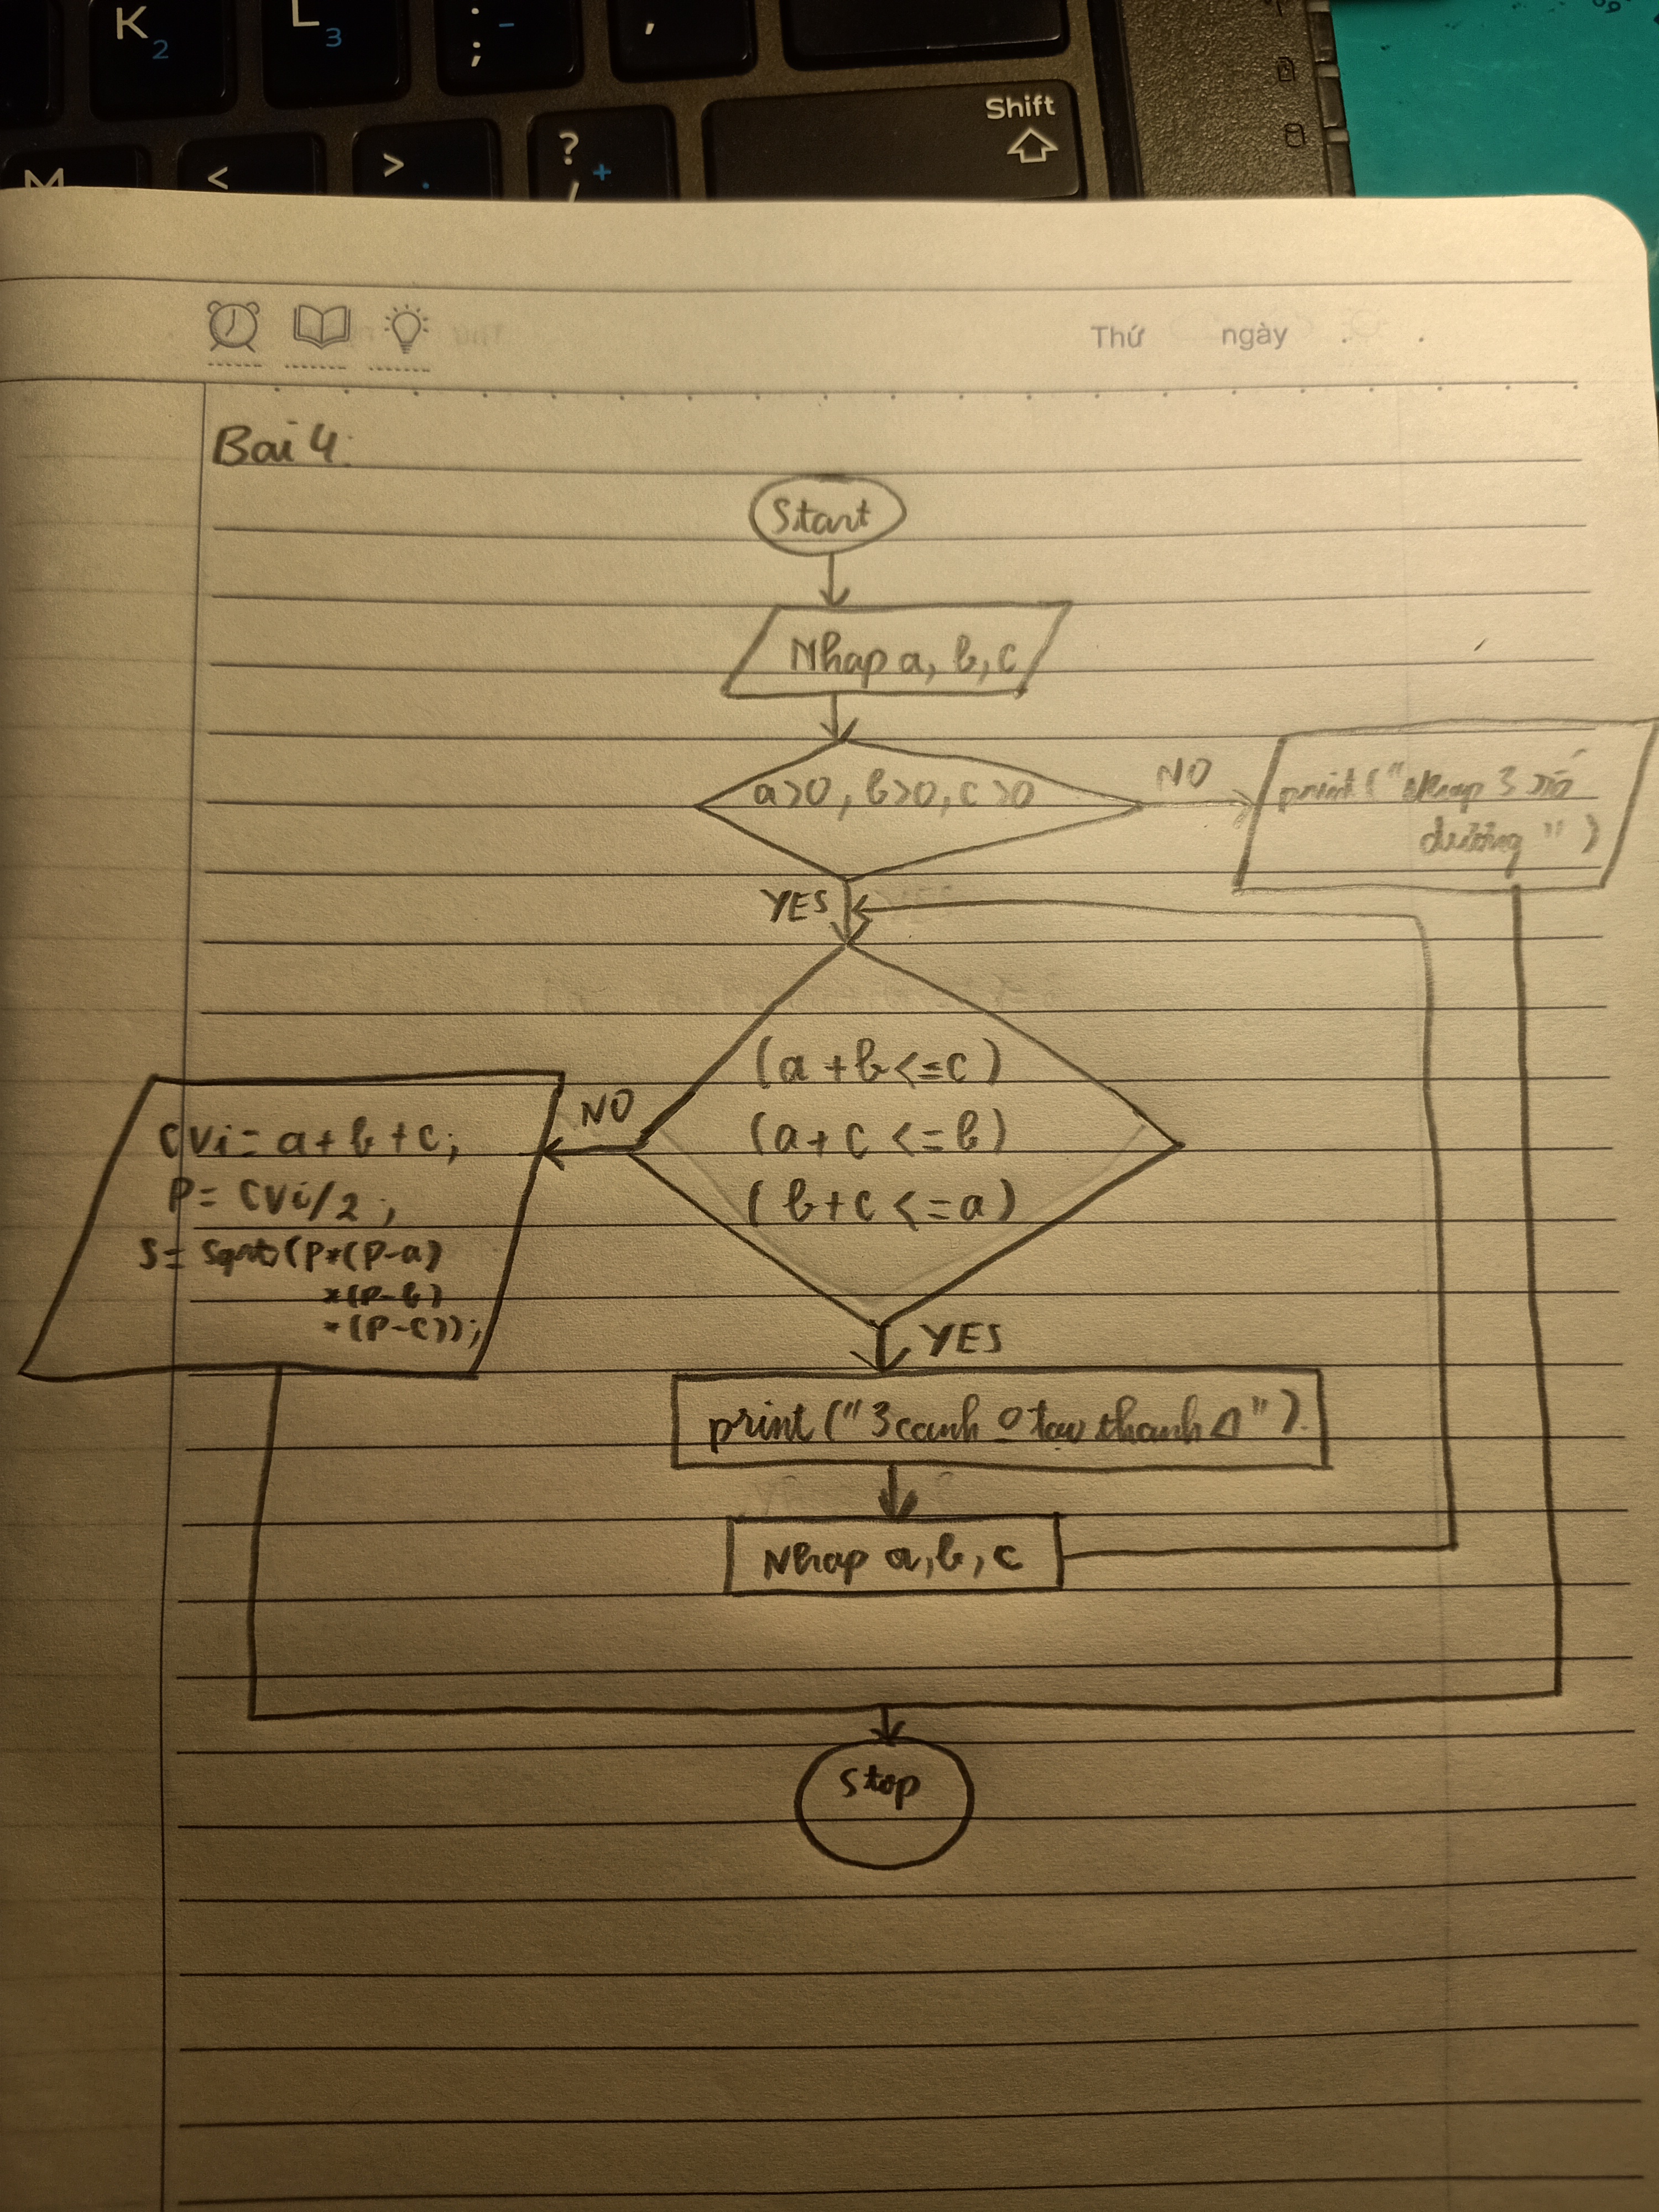 K 2
L 3
; -
;
,
Shift
M
<
> .
? +
/
Thứ ngày
Bai 4:
Start
Nhap a, b, c
a>0, b>0, c>0
NO
print("Nhap 3 số
dương")
YES
(a+b<=c)
(a+c<=b)
(b+c<=a)
NO
CVi = a+b+c;
P = CVi/2;
S = sqrt(P*(P-a)
*(P-b)
*(P-c));
YES
print("3 canh 0 tao thanh Δ").
Nhap a, b, c
Stop